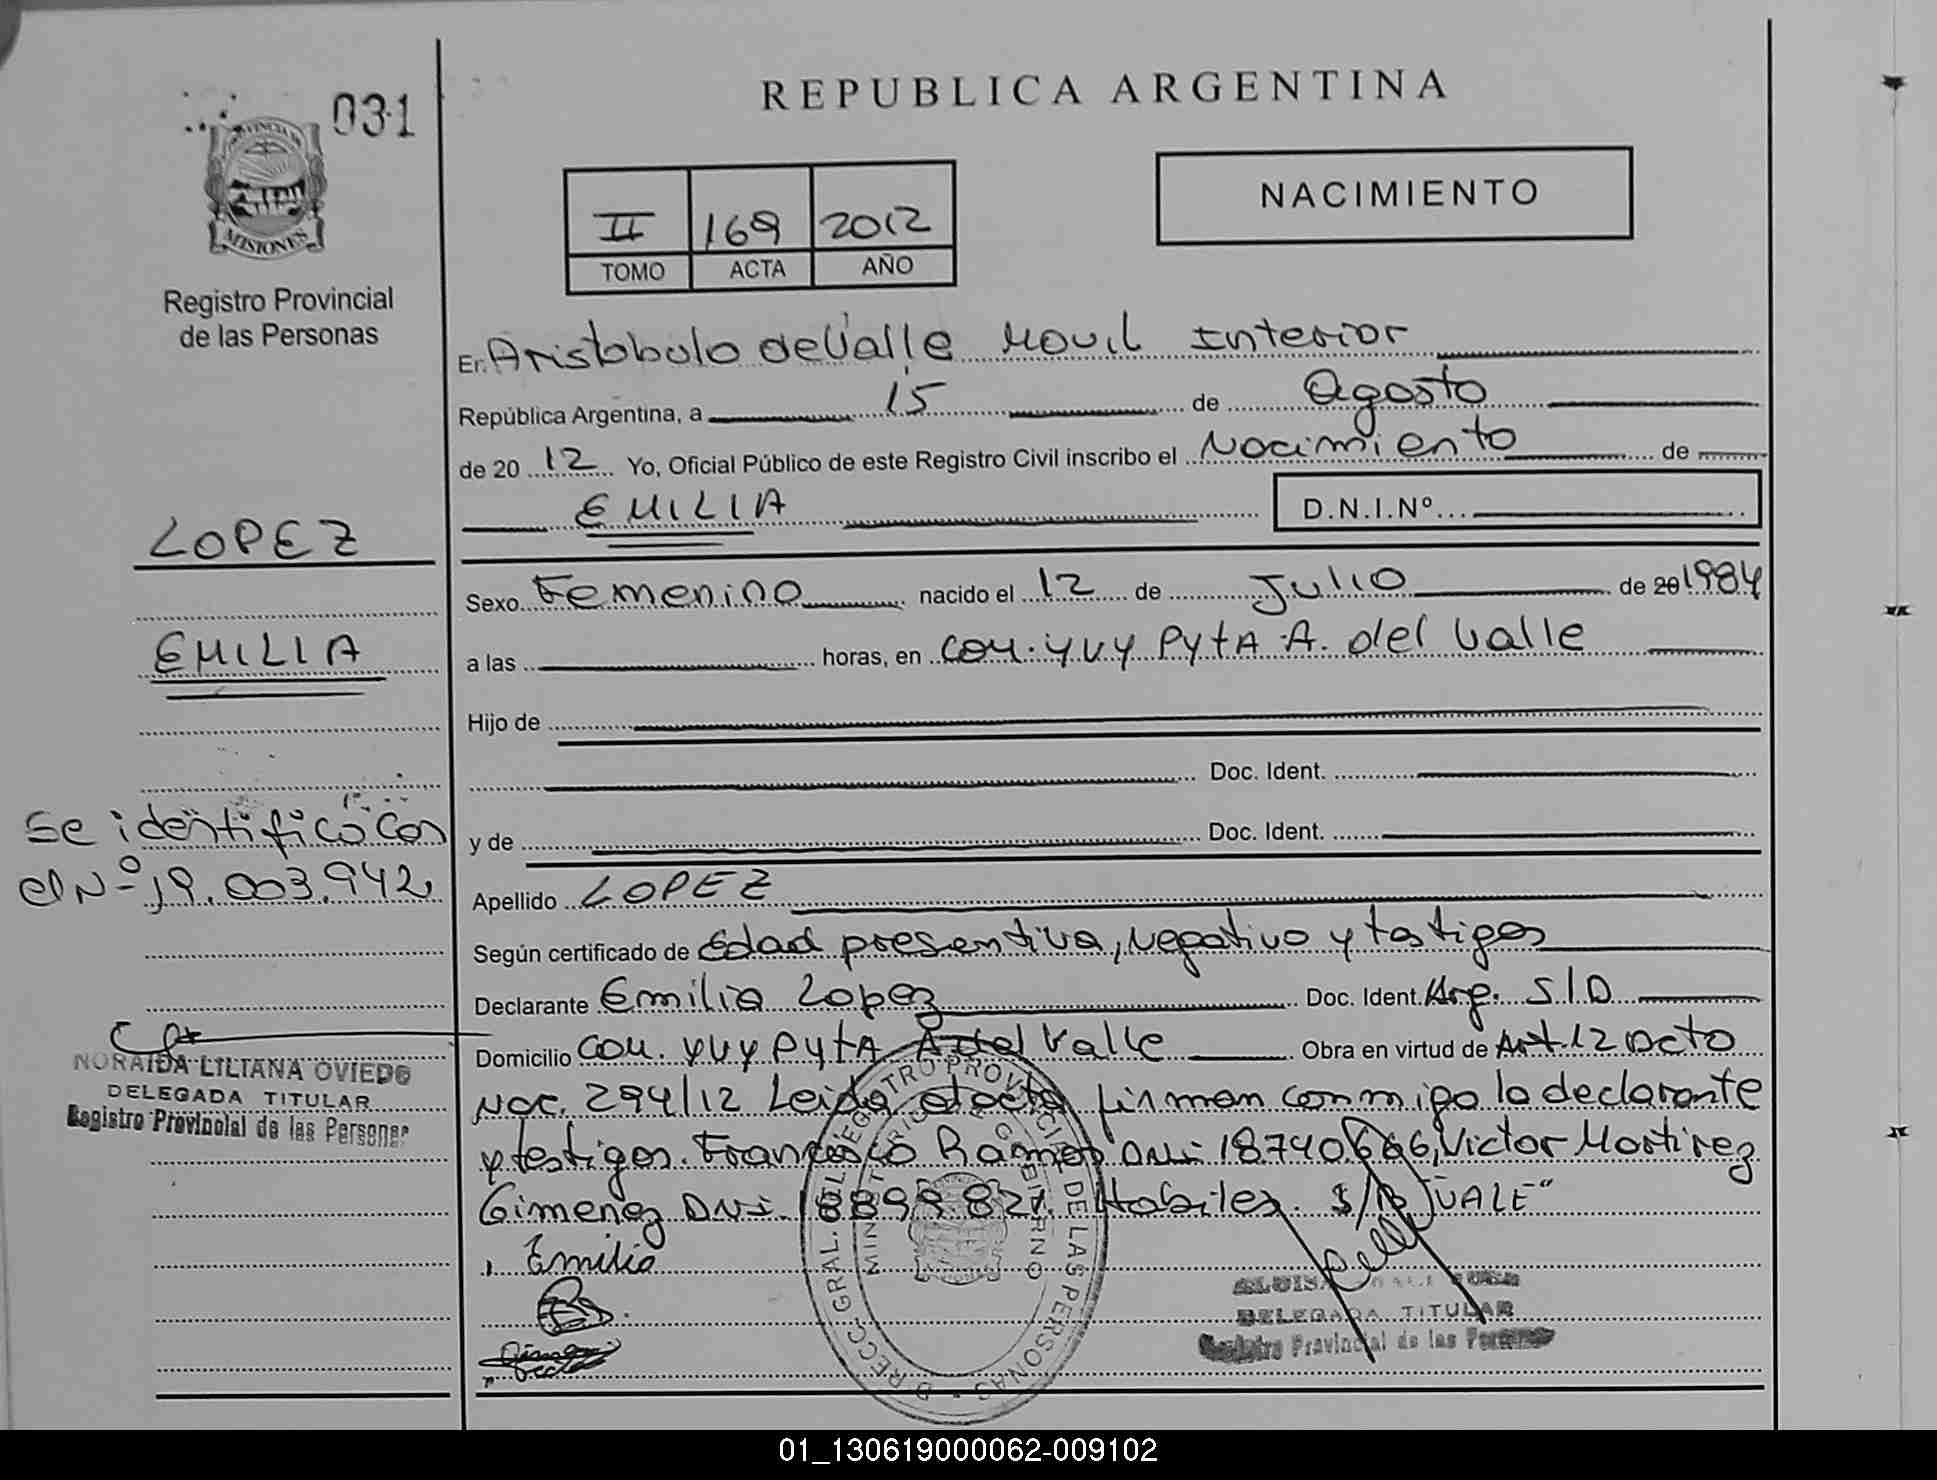 031
PROVINCIA DE
MISIONES
Registro Provincial
de las Personas
LOPEZ
EMILIA
Se identificó con
el Nº 19.003.942
NORAIDA LILIANA OVIEDO
DELEGADA TITULAR
Registro Provincial de las Personas
REPUBLICA ARGENTINA
II 169 2012
TOMO ACTA AÑO
NACIMIENTO
En Aristobulo del Valle Movil Interior
República Argentina, a 15 de Agosto
de 20 12 Yo, Oficial Público de este Registro Civil inscribo el Nacimiento de
EMILIA D.N.I.Nº
Sexo Femenino nacido el 12 de Julio de 20 1984
a las horas, en Com. YVY PYTA A. del Valle
Hijo de
Doc. Ident.
y de Doc. Ident.
Apellido LOPEZ
Según certificado de Edad presentiva, Negativo y testigos
Declarante Emilia Lopez Doc. Ident. Arg. S/D
Domicilio Com. YVY PYTA A del Valle Obra en virtud de Art. 12 Dcto
Nac. 294/12 Leida el acta firman conmigo la declarante
y testigos. Francisco Ramos DNI 18740666, Victor Martinez
Gimenez DNI. 18899821. Habiles. S/B "VALE"
Emilia
DIRECC. GRAL. DEL REGISTRO PROVINCIAL DE LAS PERSONAS
MINISTERIO DE GOBIERNO
DELEGADA TITULAR
Registro Provincial de las Personas
01_130619000062-009102